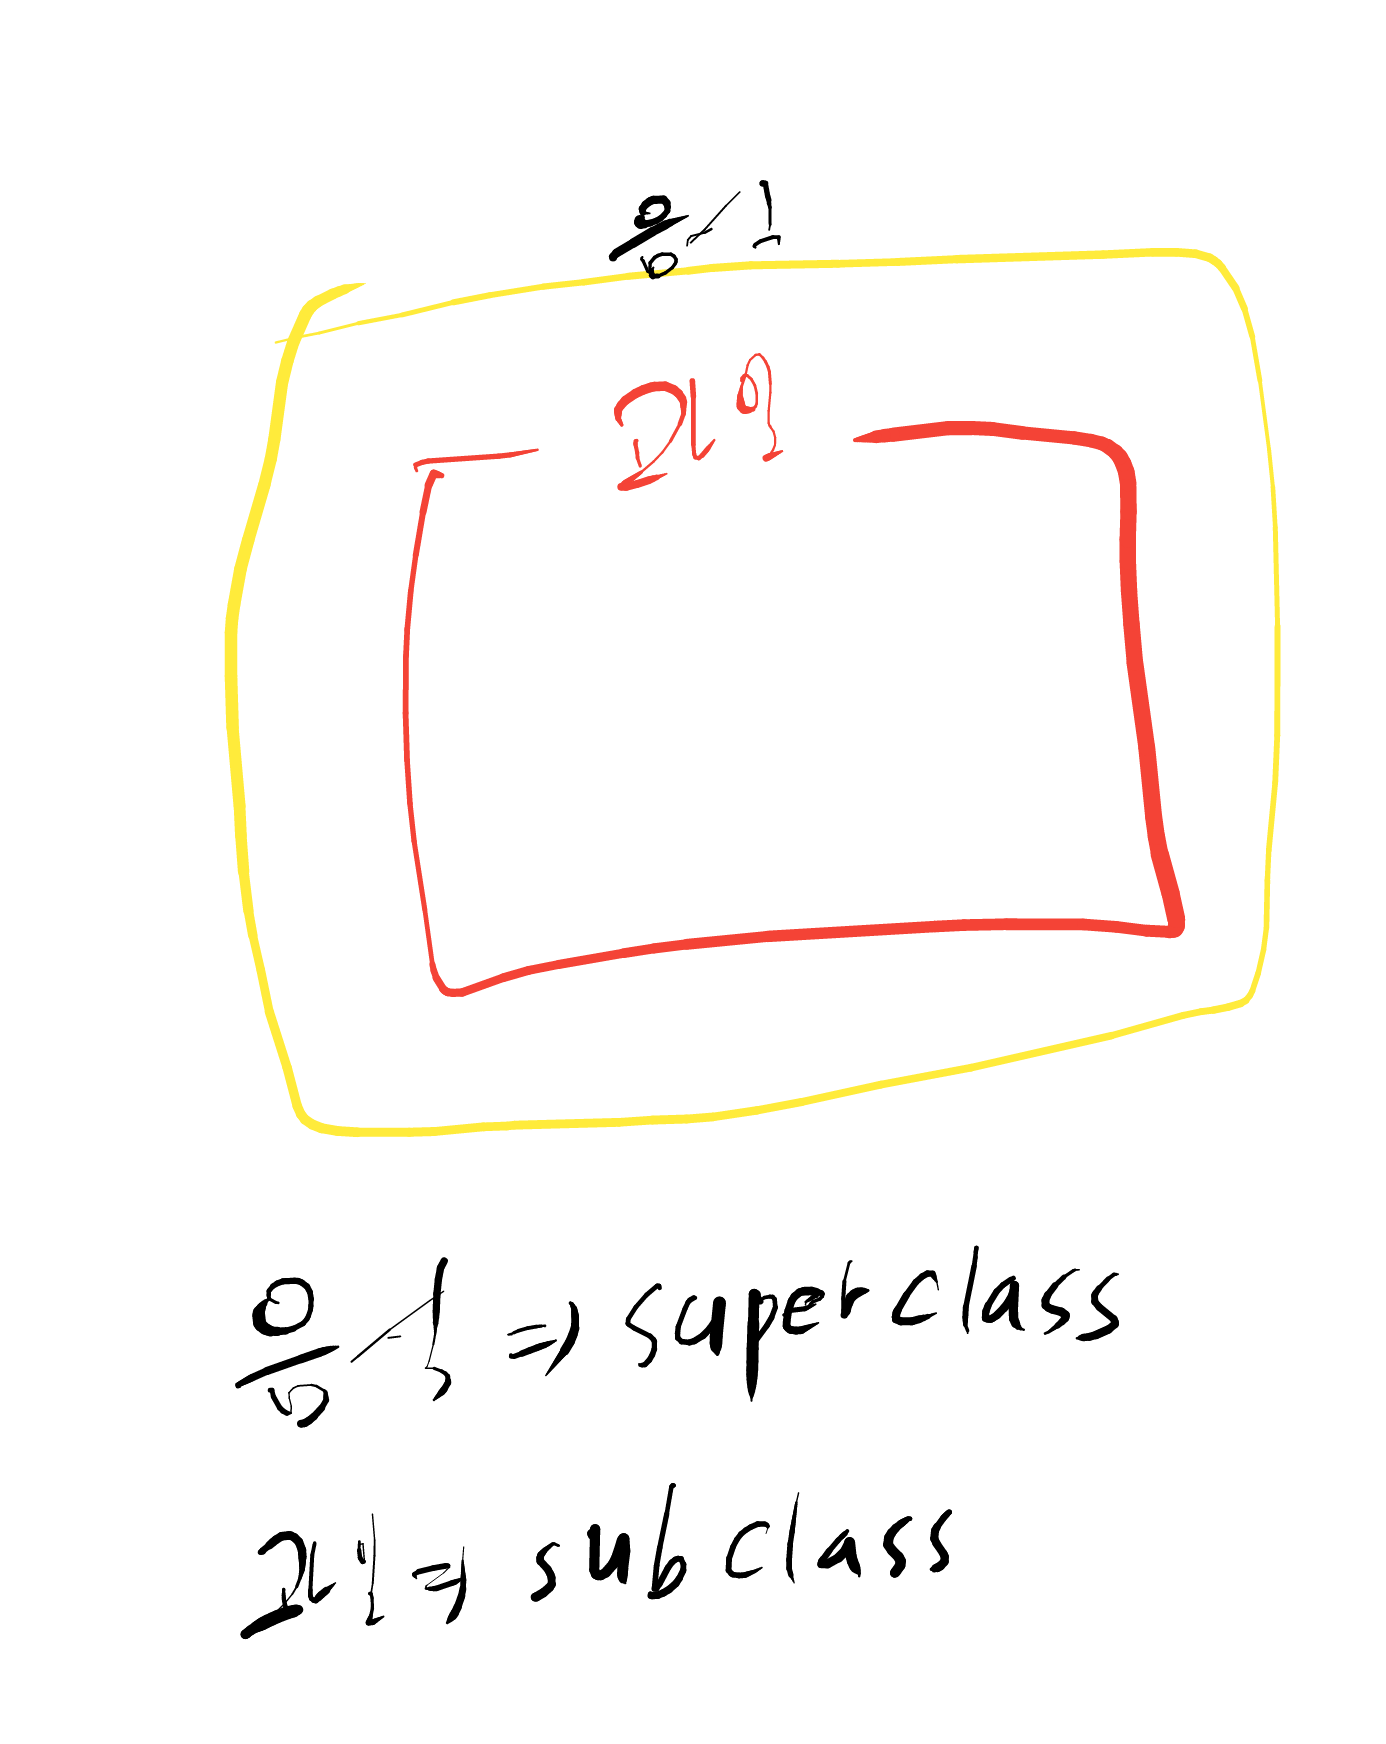 음식
과일
음식 => super class
과일 => sub class